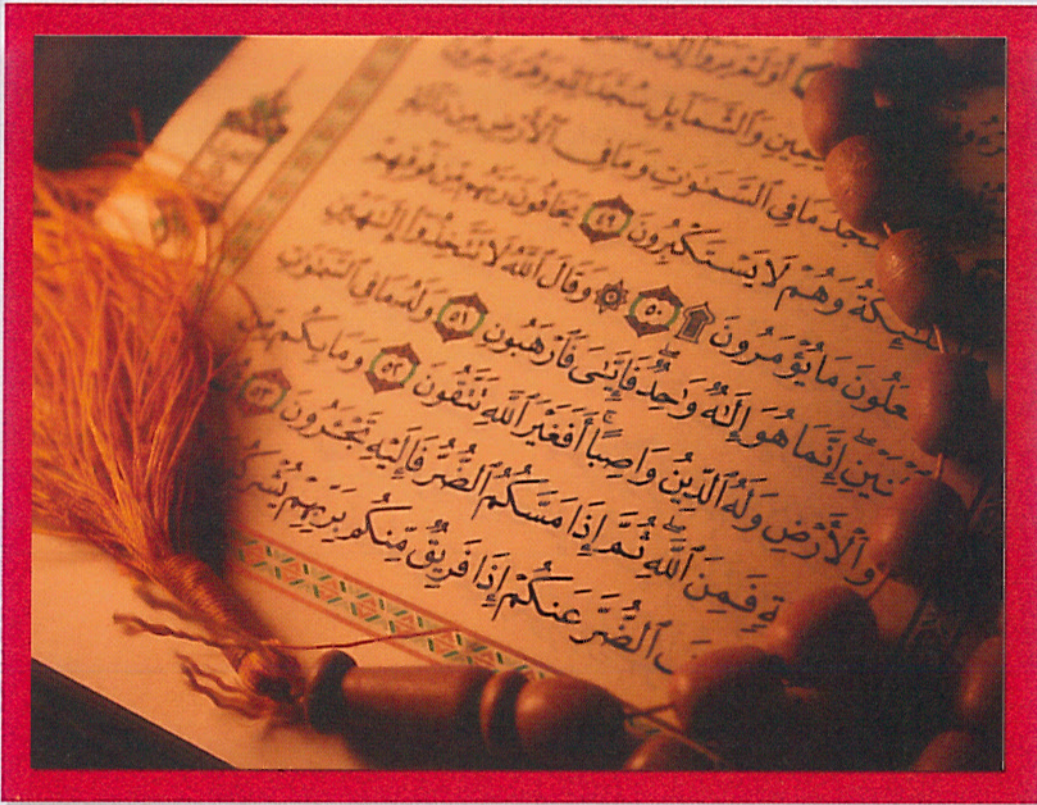 أَوَلَمْ يَرَوْا۟ إِلَىٰ مَا
يَمِينِ وَٱلشَّمَآئِلِ سُجَّدًا لِّلَّهِ وَهُمْ
سْجُدُ مَا فِى ٱلسَّمَٰوَٰتِ وَمَا فِى ٱلْأَرْضِ مِن دَآبَّةٍ
لَٰٓئِكَةُ وَهُمْ لَا يَسْتَكْبِرُونَ ٤٩ يَخَافُونَ رَبَّهُم مِّن فَوْقِهِمْ
عَلُونَ مَا يُؤْمَرُونَ ۩ ٥٠ ۞ وَقَالَ ٱللَّهُ لَا تَتَّخِذُوٓا۟ إِلَٰهَيْنِ
ثْنَيْنِ ۖ إِنَّمَا هُوَ إِلَٰهٌ وَٰحِدٌ ۖ فَإِيَّٰىَ فَٱرْهَبُونِ ٥١ وَلَهُۥ مَا فِى ٱلسَّمَٰوَٰتِ
وَٱلْأَرْضِ وَلَهُ ٱلدِّينُ وَاصِبًا ۚ أَفَغَيْرَ ٱللَّهِ تَتَّقُونَ ٥٢ وَمَا بِكُم مِّن
ةٍ فَمِنَ ٱللَّهِ ۖ ثُمَّ إِذَا مَسَّكُمُ ٱلضُّرُّ فَإِلَيْهِ تَجْـَٔرُونَ ٥٣
فَ ٱلضُّرَّ عَنكُمْ إِذَا فَرِيقٌ مِّنكُم بِرَبِّهِمْ يُشْرِكُ